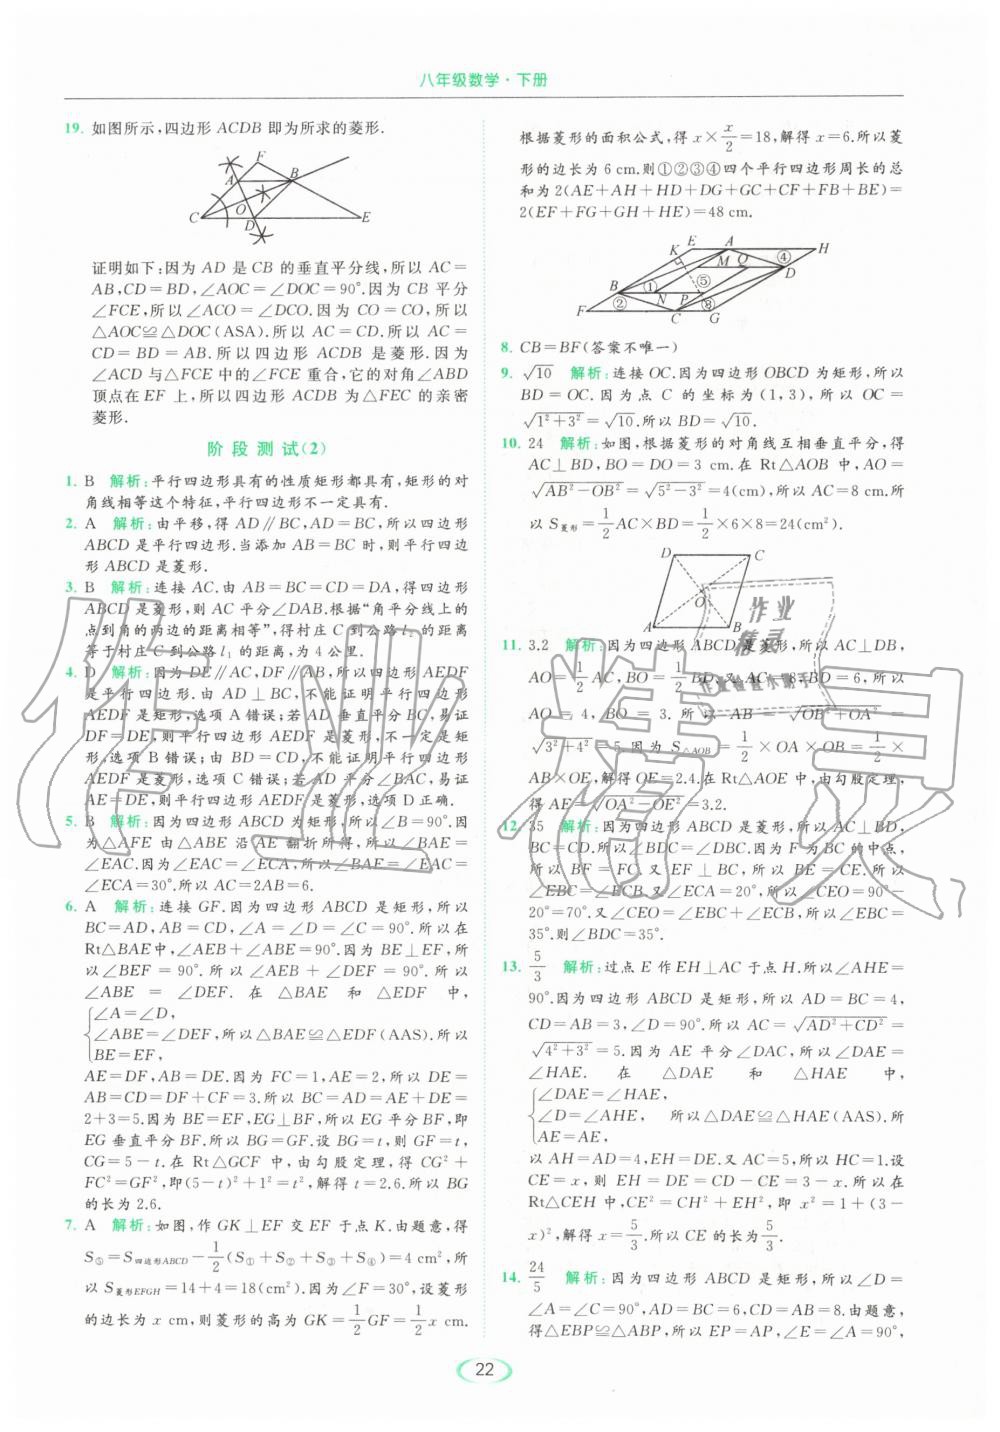 八年级数学·下册
19. 如图所示,四边形 ACDB 即为所求的菱形.
F
A
B
O
C
D
E
证明如下:因为 AD 是 CB 的垂直平分线,所以 AC=
AB,CD=BD,∠AOC=∠DOC=90°.因为 CB 平分
∠FCE,所以∠ACO=∠DCO.因为 CO=CO,所以
△AOC≌△DOC(ASA).所以 AC=CD.所以 AC=
CD=BD=AB.所以四边形 ACDB 是菱形.因为
∠ACD 与△FCE 中的∠FCE 重合,它的对角∠ABD
顶点在 EF 上,所以四边形 ACDB 为△FEC 的亲密
菱形.
阶段测试(2)
1. B 解析:平行四边形具有的性质矩形都具有,矩形的对
角线相等这个特征,平行四边形不一定具有.
2. A 解析:由平移,得 AD∥BC,AD=BC,所以四边形
ABCD 是平行四边形.当添加 AB=BC 时,则平行四边
形 ABCD 是菱形.
3. B 解析:连接 AC.由 AB=BC=CD=DA,得四边形
ABCD 是菱形,则 AC 平分∠DAB.根据“角平分线上的
点到角的两边的距离相等”,得村庄 C 到公路 l₂ 的距离
等于村庄 C 到公路 l₁ 的距离,为 4 公里.
4. D 解析:因为 DE∥AC,DF∥AB,所以四边形 AEDF
是平行四边形.由 AD⊥BC,不能证明平行四边形
AEDF 是矩形,选项 A 错误;若 AD 垂直平分 BC,易证
DF=DE,则平行四边形 AEDF 是菱形,不一定是矩
形,选项 B 错误;由 BD=CD,不能证明平行四边形
AEDF 是菱形,选项 C 错误;若 AD 平分∠BAC,易证
AE=DE,则平行四边形 AEDF 是菱形,选项 D 正确.
5. B 解析:因为四边形 ABCD 为矩形,所以∠B=90°.因
为△AFE 由△ABE 沿 AE 翻折所得,所以∠BAE=
∠EAC.因为∠EAC=∠ECA,所以∠BAE=∠EAC=
∠ECA=30°.所以 AC=2AB=6.
6. A 解析:连接 GF.因为四边形 ABCD 是矩形,所以
BC=AD,AB=CD,∠A=∠D=∠C=90°.所以在
Rt△BAE中,∠AEB+∠ABE=90°.因为 BE⊥EF,所
以∠BEF=90°.所以∠AEB+∠DEF=90°.所以
∠ABE=∠DEF.在△BAE 和△EDF 中,
∠A=∠D,
∠ABE=∠DEF,所以△BAE≌△EDF(AAS).所以
BE=EF,
AE=DF,AB=DE.因为 FC=1,AE=2,所以 DE=
AB=CD=DF+CF=3.所以 BC=AD=AE+DE=
2+3=5.因为 BE=EF,EG⊥BF,所以 EG 平分 BF,即
EG 垂直平分 BF.所以 BG=GF.设 BG=t,则 GF=t,
CG=5-t.在 Rt△GCF 中,由勾股定理,得 CG²+
FC²=GF²,即(5-t)²+1²=t²,解得 t=2.6.所以 BG
的长为 2.6.
7. A 解析:如图,作 GK⊥EF 交 EF 于点 K.由题意,得
S⑤=S四边形ABCD-1/2(S①+S②+S③+S④)=4 cm²,所
以 S菱形EFGH=14+4=18(cm²).因为∠F=30°,设菱形
的边长为 x cm,则菱形的高为 GK=1/2GF=1/2x cm.
根据菱形的面积公式,得 x×x/2=18,解得 x=6.所以菱
形的边长为 6 cm.则①②③④四个平行四边形周长的总
和为 2(AE+AH+HD+DG+GC+CF+FB+BE)=
2(EF+FG+GH+HE)=48 cm.
K E A H
M Q ④ D
B ① ⑤
② N P ③
F C G
8. CB=BF(答案不唯一)
9. √10 解析:连接 OC.因为四边形 OBCD 为矩形,所以
BD=OC.因为点 C 的坐标为(1,3),所以 OC=
√1²+3²=√10.所以 BD=√10.
10. 24 解析:如图,根据菱形的对角线互相垂直平分,得
AC⊥BD,BO=DO=3 cm.在 Rt△AOB 中,AO=
√AB²-OB²=√5²-3²=4(cm),所以 AC=8 cm.所
以 S菱形=1/2AC×BD=1/2×6×8=24(cm²).
D
C
O
A
B
11. 3.2 解析:因为四边形 ABCD 是菱形,所以 AC⊥DB,
AO=1/2AC,BO=1/2BD.又 AC=8,BD=6,所以
AO=4,BO=3.所以 AB=√OB²+OA²=
√3²+4²=5.因为 S△AOB=1/2×OA×OB=1/2×
AB×OE,解得 OE=2.4.在 Rt△AOE 中,由勾股定理,
得 AE=√OA²-OE²=3.2.
12. 35 解析:因为四边形 ABCD 是菱形,所以 AC⊥BD,
BC=CD.所以∠BDC=∠DBC.因为 F 为 BC 的中点,
所以 BF=FC.又 EF⊥BC,所以 BE=CE.所以
∠EBC=∠ECB.又∠ECA=20°,所以∠CEO=90°-
20°=70°.又∠CEO=∠EBC+∠ECB,所以∠EBC=
35°.则∠BDC=35°.
13. 5/3 解析:过点 E 作EH⊥AC 于点 H.所以∠AHE=
90°.因为四边形 ABCD 是矩形,所以 AD=BC=4,
CD=AB=3,∠D=90°.所以 AC=√AD²+CD²=
√4²+3²=5.因为 AE 平分∠DAC,所以∠DAE=
∠HAE.在△DAE 和△HAE 中,
∠DAE=∠HAE,
∠D=∠AHE, 所以△DAE≌△HAE(AAS).所
AE=AE,
以 AH=AD=4,EH=DE.又 AC=5,所以 HC=1.设
CE=x,则 EH=DE=CD-CE=3-x.所以在
Rt△CEH 中,CE²=CH²+EH²,即 x²=1+(3-
x)²,解得 x=5/3.所以 CE 的长为5/3.
14. 24/5 解析:因为四边形 ABCD 是矩形,所以∠D=
∠A=∠C=90°,AD=BC=6,CD=AB=8.由题意,
得△EBP≌△ABP,所以 EP=AP,∠E=∠A=90°,
22
作业精灵
作业
精灵
作业检查小助手